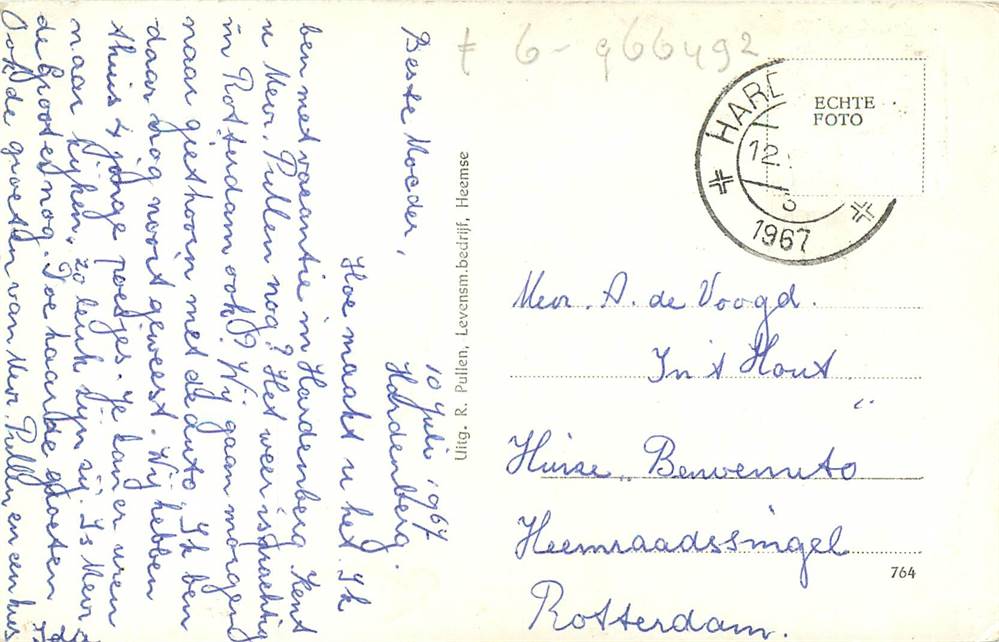 10 Juli 1967
Hardenberg.
Beste Moeder,
Hoe maakt u het. Ik
ben met vacantie in Hardenberg. Kent
u Mevr. Pullen nog? Het weer is prachtig
in Rotterdam ook? Wij gaan morgen
naar giethoorn met de auto. Ik ben
daar nog nooit geweest. Wij hebben
thuis 4 jonge poesjes. Je kan er uren
naar kijken. zo leuk zijn zij. Is Mevr
de Groot er nog. Doe haar de groeten
Ook de groeten van Mevr. Pullen en een kus
Uitg. R. Pullen, Levensm.bedrijf, Heemse
6-966492
ECHTE
FOTO
HARD
12.
1967
Mevr. A. de Voogd.
In 't Hout
Huize „Benvenuto
Heemraadssingel
764
Rotterdam.